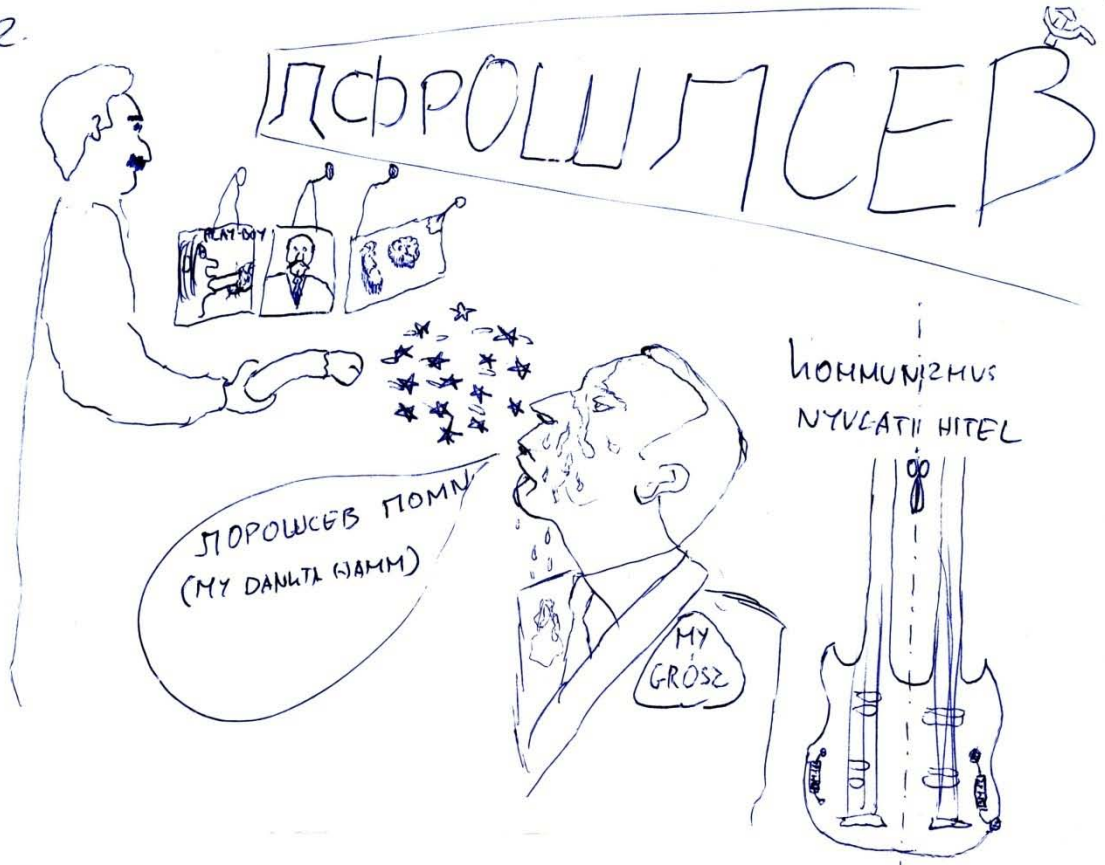 2.
ЛСФРОШЛСЕВ
PLAY-BOY
KOMMUNIZMUS
NYUGATI HITEL
ЛОРОШСЕВ ПОМИ
(MY DANUTA HAMM)
MY
GRÓSZ